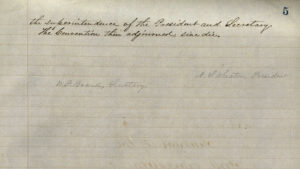 5
the superintendence of the President and Secretary
The Convention then adjourned, sine die.
President
Secretary